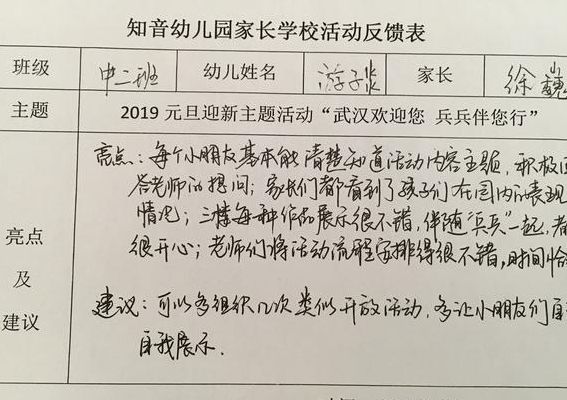 知音幼儿园家长学校活动反馈表
班级 中二班 幼儿姓名 游子 家长 徐巍
主题 2019 元旦迎新主题活动“武汉欢迎您 兵兵伴您行”
亮点及建议
亮点：每个小朋友基本能清楚知道活动内容主题，积极回
答老师的提问；家长们都看到了孩子们在园内的表现
情况；三楼每种作品展示很不错，伴随“兵兵”一起，都
很开心；老师们将活动流程安排得很不错，时间恰
建议：可以多组织几次类似开放活动，多让小朋友们自
自我展示.